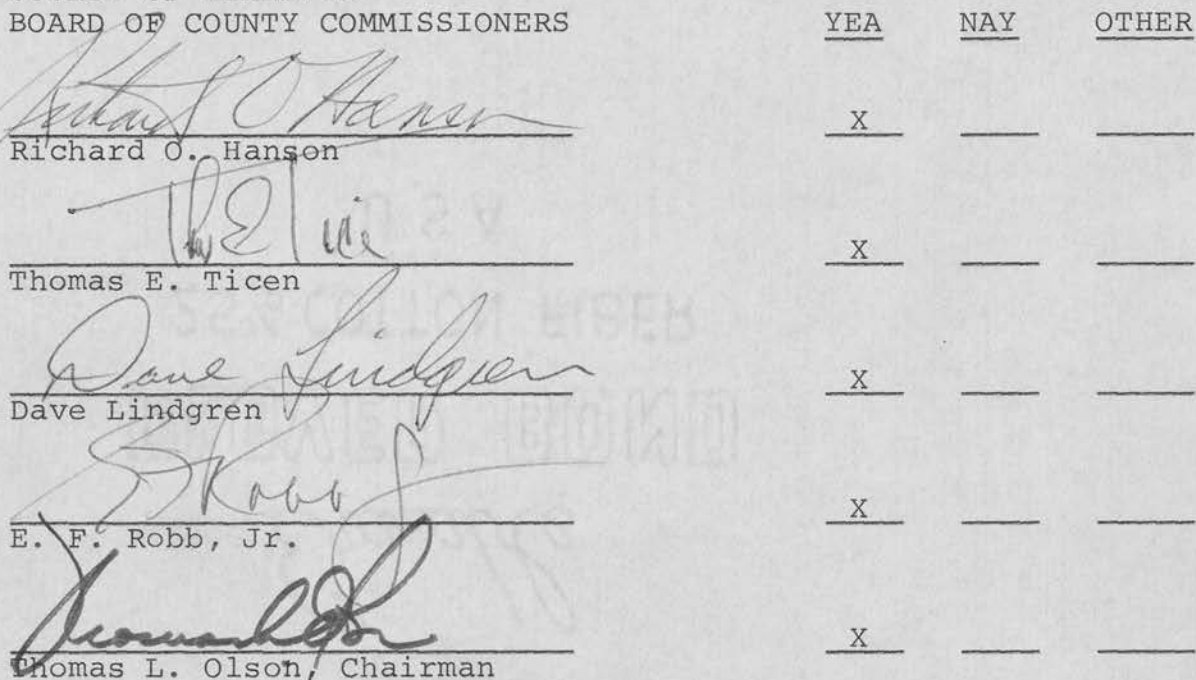 BOARD OF COUNTY COMMISSIONERS YEA NAY OTHER
Richard O Hanson X
Richard O. Hanson
X
Thomas E. Ticen
Dave Lindgren X
Dave Lindgren
E F Robb Jr X
E. F. Robb, Jr.
X
Thomas L. Olson, Chairman
U S A
25% COTTON FIBER
BOND